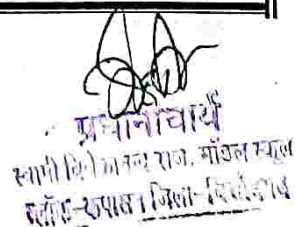 प्रधानाचार्य
स्वामी विवेकानन्द राज. मॉडल स्कूल
ब्लॉक- जिला-